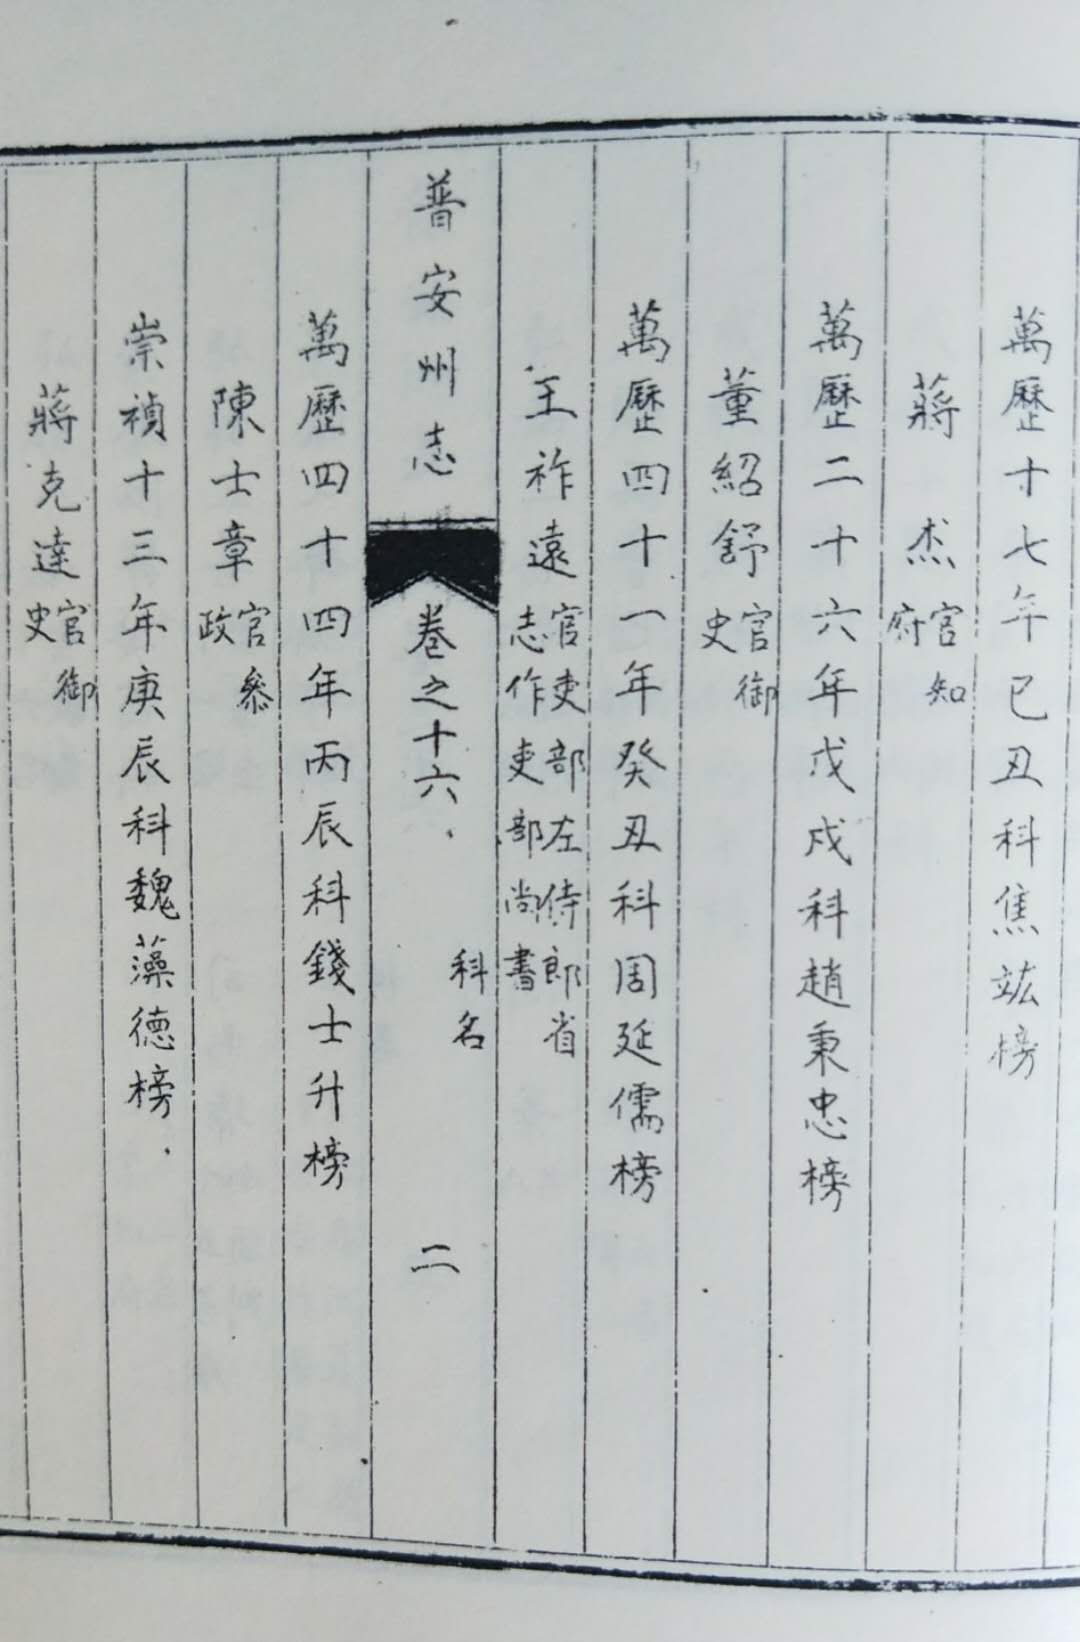 萬歷十七年己丑科焦竑榜
蔣　杰官知府
萬歷二十六年戊戌科趙秉忠榜
董紹舒官御史
萬歷四十一年癸丑科周延儒榜
王祚遠官吏部左侍郎省志作吏部尚書
普安州志　卷之十六、　科名　二
萬歷四十四年丙辰科錢士升榜
陳士章官叅政
崇禎十三年庚辰科魏藻德榜.
蔣克達官御史